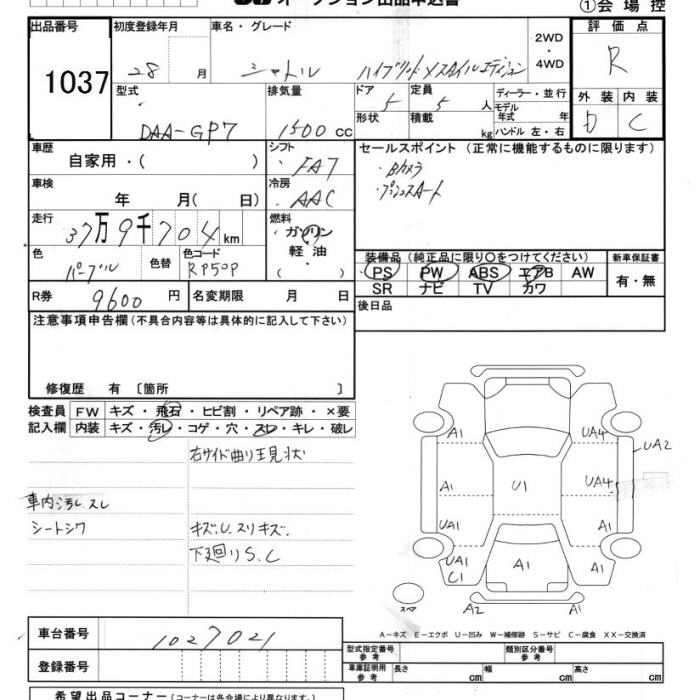 オークション出品申込書
①会場控
出品番号 初度登録年月 車名・グレード 2WD ・ 4WD 評価点
1037 28 月 シャトル ハイブリッドXスタイルエディション R
型式 排気量 ドア 定員 ディーラー・並行 外装 内装
DAA-GP7 1500cc 5 5人 モデル年式 年 D C
形状 積載 kg ハンドル 左・右
車歴 シフト セールスポイント(正常に機能するものに限ります)
自家用・( ) FA7 ・Bカメラ
車検 冷房 ・プッシュスタート
年 月( 日) AAC
走行 燃料
37万9千704km ガソリン
色 色替 色コード 軽油 装備品(純正品に限り○をつけてください) 新車保証書
パープル RP50P ・( ) PS PW ABS エアB AW 有・無
SR ナビ TV カワ
R券 9600円 名変期限 月 日 後日品
注意事項申告欄(不具合内容等は具体的に記入して下さい)
修復歴 有 〔箇所 〕
検査員 FW キズ・飛石・ヒビ割・リペア跡・×要
記入欄 内装 キズ・汚レ・コゲ・穴・スレ・キレ・破レ
右サイド曲り現状
車内汚レスレ
シートシワ キズ.U.スリキズ.
下廻りS.C
A1 UA4 UA2
A1 U1 UA4
UA1 A1
UA1 C1 A1 A1
スペア A2 A1
A-キズ E-エクボ U-凹み W-補修跡 S-サビ C-腐食 XX-交換済
車台番号 1027021
型式指定番号 参考 類別区分番号 参考
登録番号 車庫証明用 参考 長さ cm 幅 cm 高さ cm
希望出品コーナー(コーナーは各会場により異なります。)